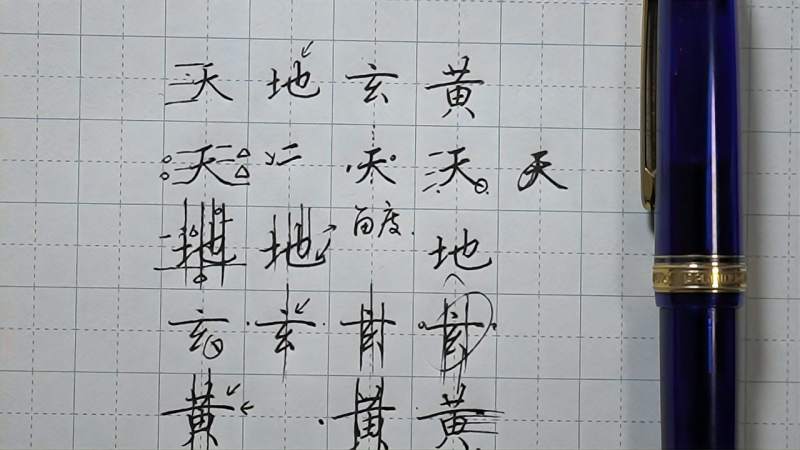 天地玄黄
天二天天天
地地百度地
玄玄玄玄
黄黄黄